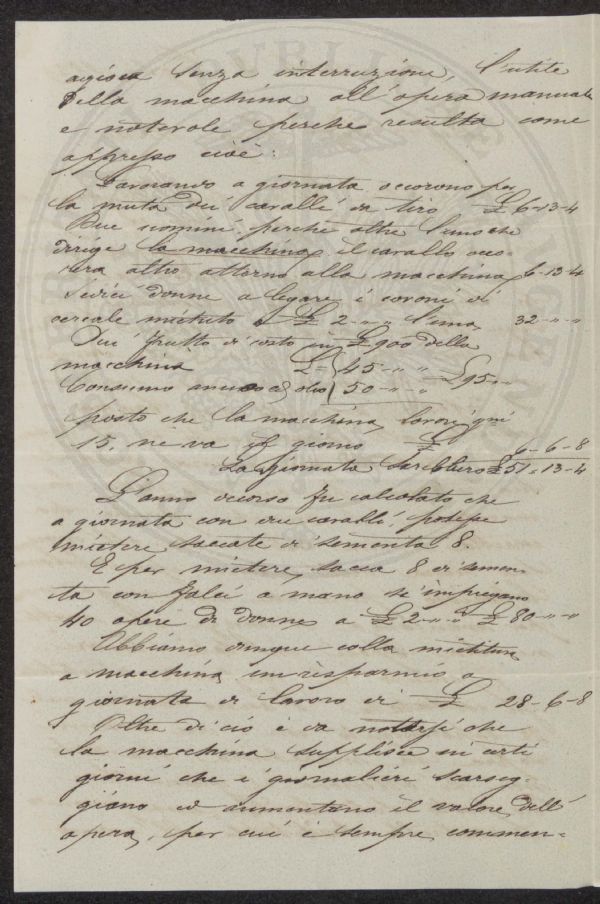 agisca senza interruzione, l'utile
della macchina all'opera manuale
e notevole perche resulta come
appresso cioè:
Lavorando a giornata occorono per
la muta dei cavalli da tiro £ 6-13-4
Due uomini perche oltre l'uno che
dirige la macchina e il cavallo occo-
rera altro attorno alla macchina 6-13-4
Sedici donne a legare i covoni di
cereale mietuto a £ 2-"-" l'una 32-"-"
Dei frutto di costo in £ 900 della
macchina £ 45-"-"
Consumo annuo e olio 50-"-" £ 95"-"
posto che la macchina lavori gni
15, ne va il giorno £ 6-6-8
La giornata sarebbero £ 51-13-4
L'anno decorso fu calcolato che
a giornata con due cavalli potesse
mietere saccate di sementa 8.
E per mietere sacca 8 di semen-
ta con falci a mano si impiegano
40 opere di donne a £ 2-"-" £ 80-"-"
Abbiamo dunque colla mietitura
a macchina un risparmio a
giornata di lavoro di £ 28-6-8
Oltre di ciò è da notarsi che
la macchina supplisce in certi
giorni che i giornalieri scarseg-
giano ed aumentano il valore dell'
opera, per cui è sempre commen-